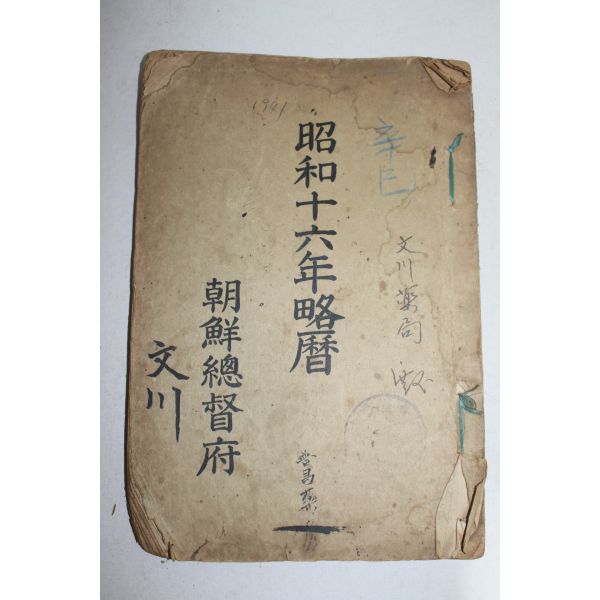 1941
辛巳
文川薬局
昭和十六年略曆
朝鮮總督府
文川